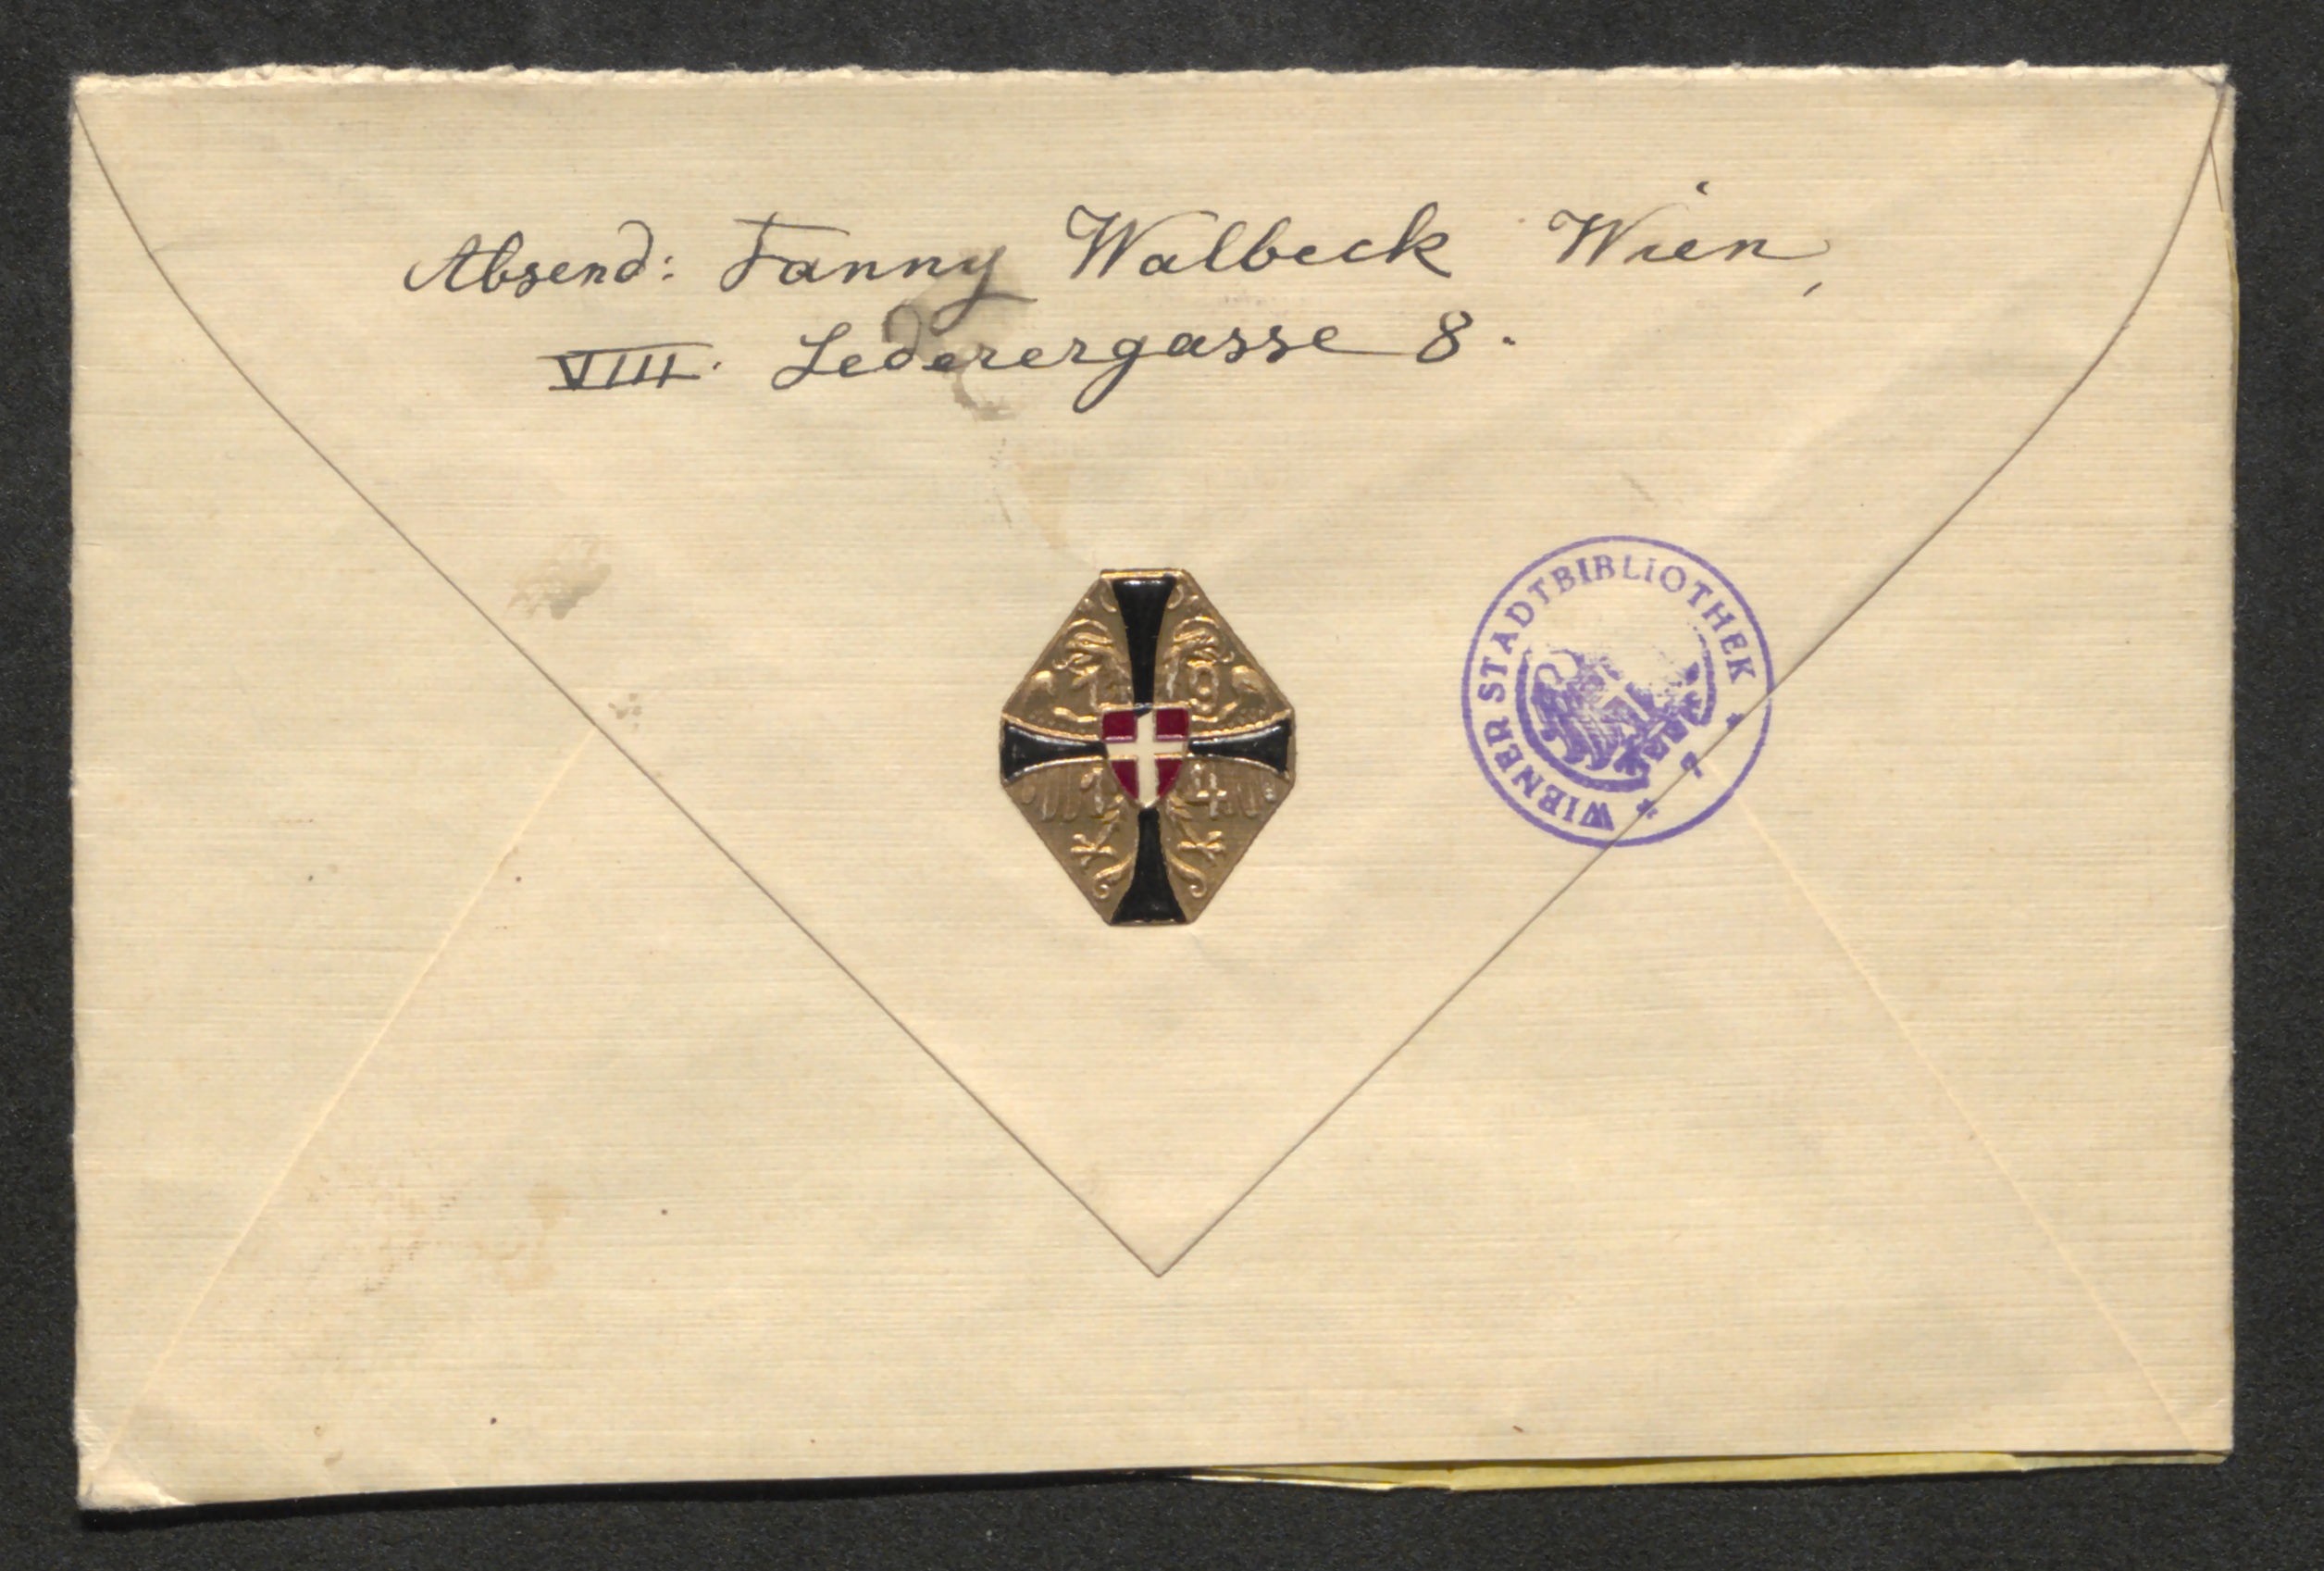 Absend: Fanny Walbeck Wien,
VIII. Lederergasse 8.
19
14
WIENER STADTBIBLIOTHEK